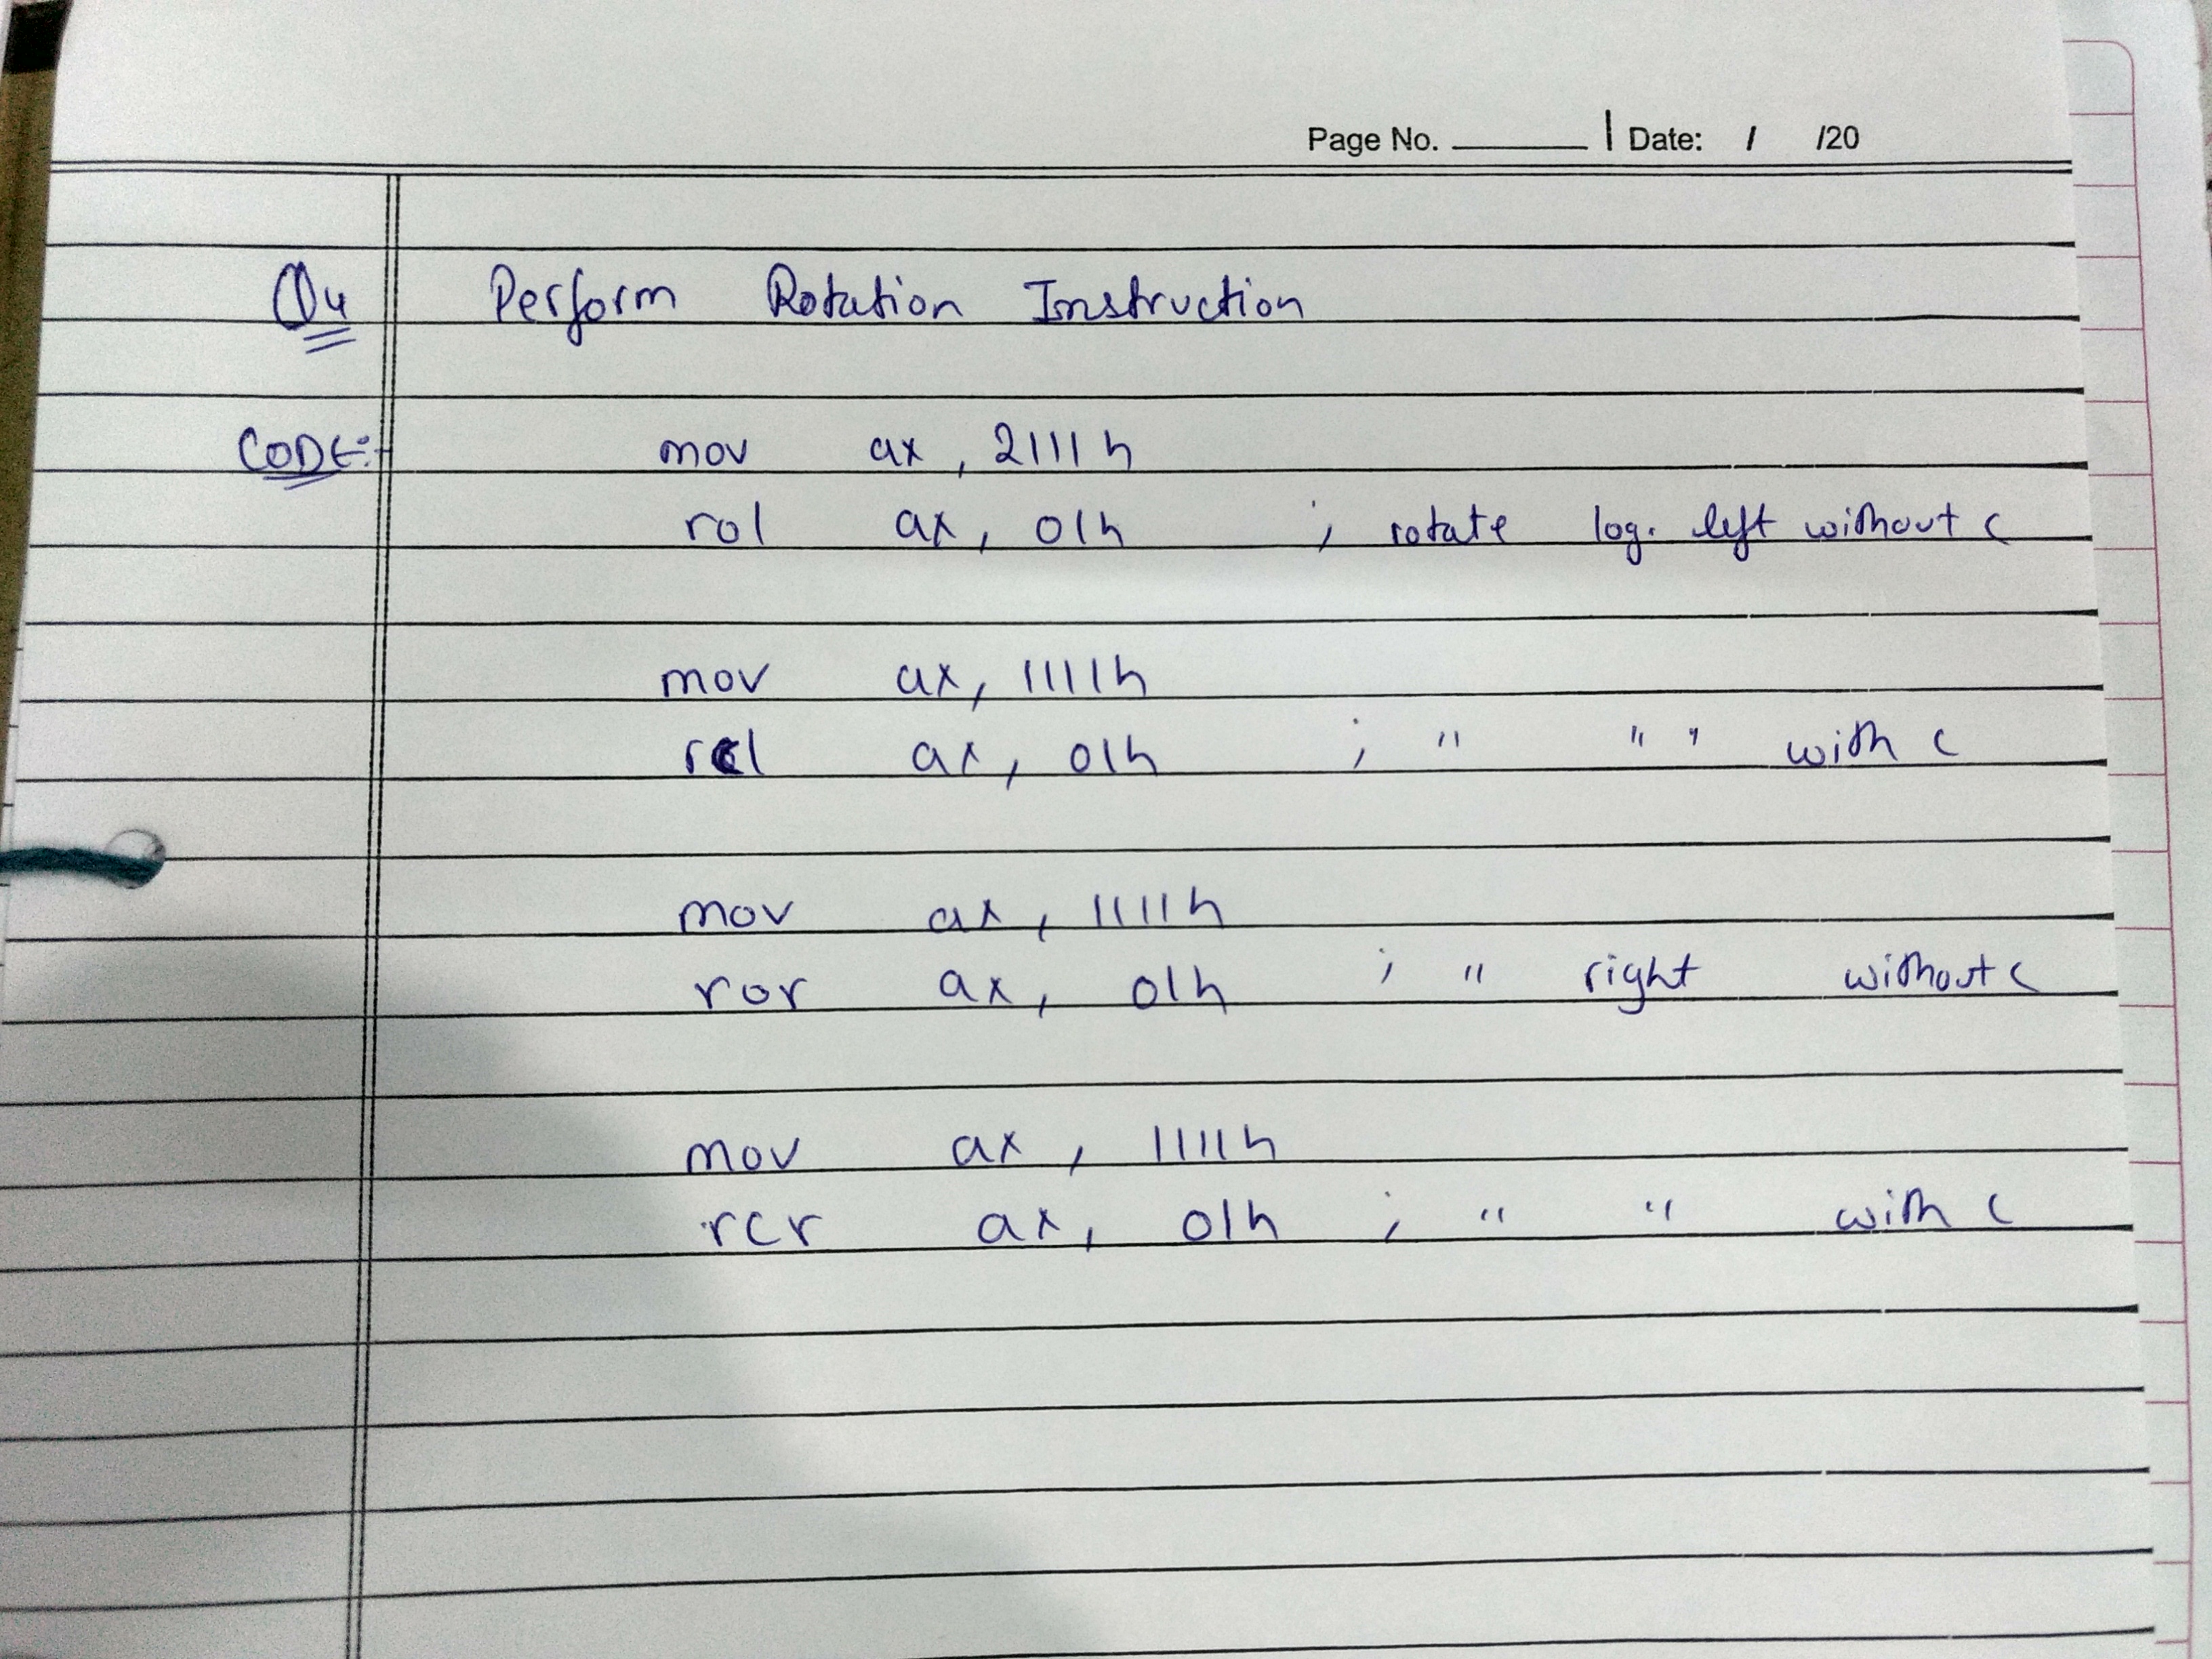 Page No. ______ | Date: / /20
Q4 Perform Rotation Instruction
CODE:- mov ax, 2111h
rol ax, 01h ; rotate log. left without c
mov ax, 1111h
rcl ax, 01h ; " " " with c
mov ax, 1111h
ror ax, 01h ; " right without c
mov ax, 1111h
rcr ax, 01h ; " " with c